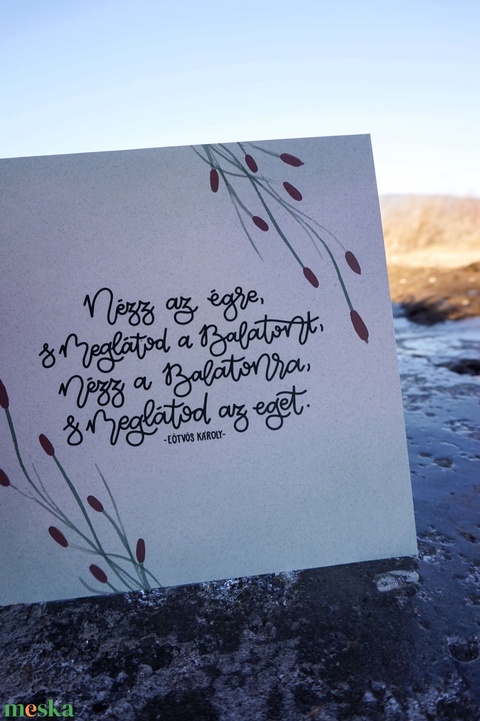 Nézz az égre,
s meglátod a Balatont,
nézz a Balatonra,
s meglátod az eget.
-EÖTVÖS KÁROLY-
meska